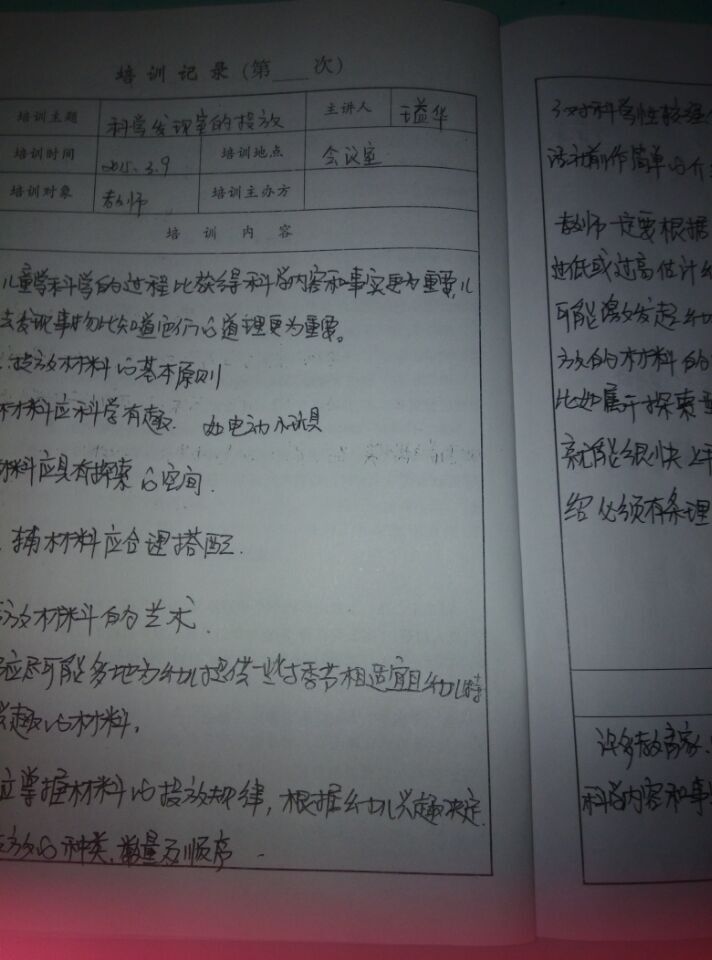 培训记录(第___次)
培训主题 科学发现室的投放 主讲人 华
培训时间 2015.3.9 培训地点 会议室
培训对象 教师 培训主办方
培训内容
儿童学科学的过程比获得科学内容和事实更为重要,儿
去发现事物比知道它们的道理更为重要。
投放材料的基本原则
材料应科学有趣. 如电动小玩具
材料应具有探索的空间.
辅材料应合理搭配.
放材料的艺术.
应尽可能多地为幼儿提供一些与季节相适宜且幼儿特
兴趣的材料.
应掌握材料的投放规律,根据幼儿兴趣决定.
放的种类,数量及顺序.
对科学性较强
活动前作简单的介
教师一定要根据
过低或过高估计幼
可能激发起幼
放的材料的
比如属于探索
就能很快上手
绍必须有条理
许多教育家
科学内容和事